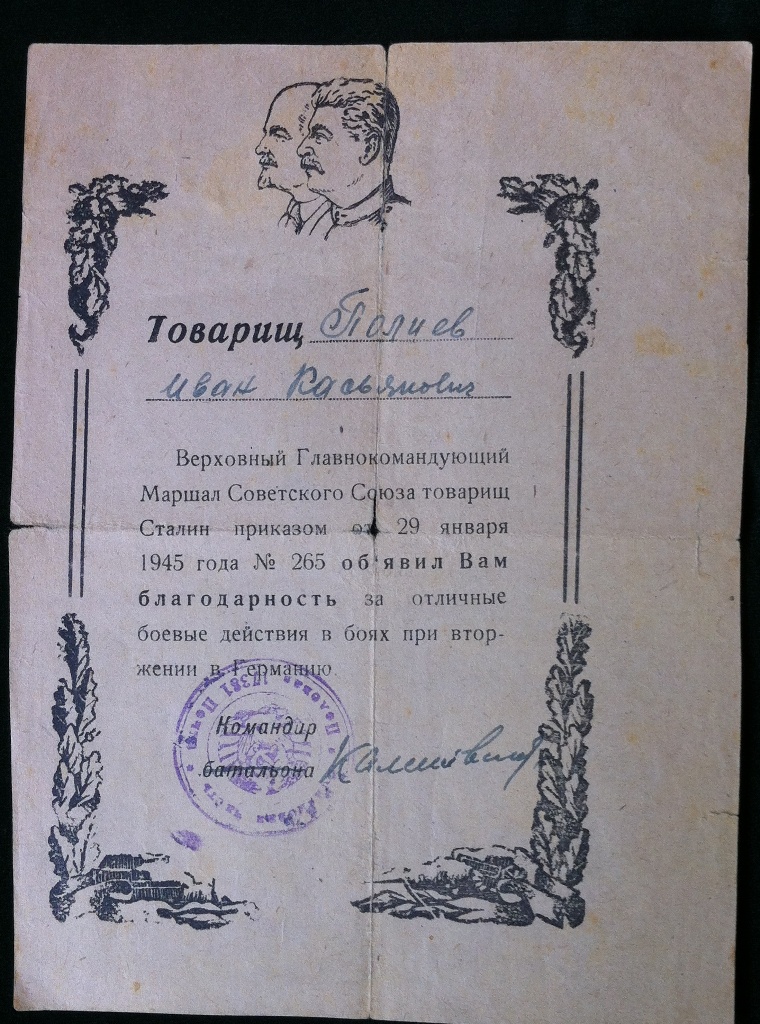 Товарищ Полиев
Иван Касьянович
Верховный Главнокомандующий
Маршал Советского Союза товарищ
Сталин приказом от 29 января
1945 года № 265 об'явил Вам
благодарность за отличные
боевые действия в боях при втор-
жении в Германию.
Командир
батальона
Полевая Почта 17381
часть